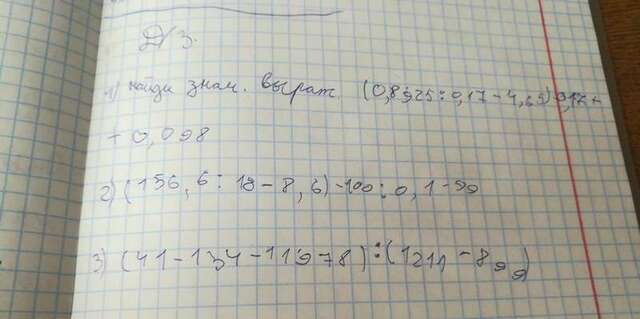 Д/З.
1) найди знач. выраж. (0,8925:0,17-4,65)·0,17+
+ 0,098
2) (156,6:18-8,6)·100:0,1-99
3) (41-134-11978):(1211-899)